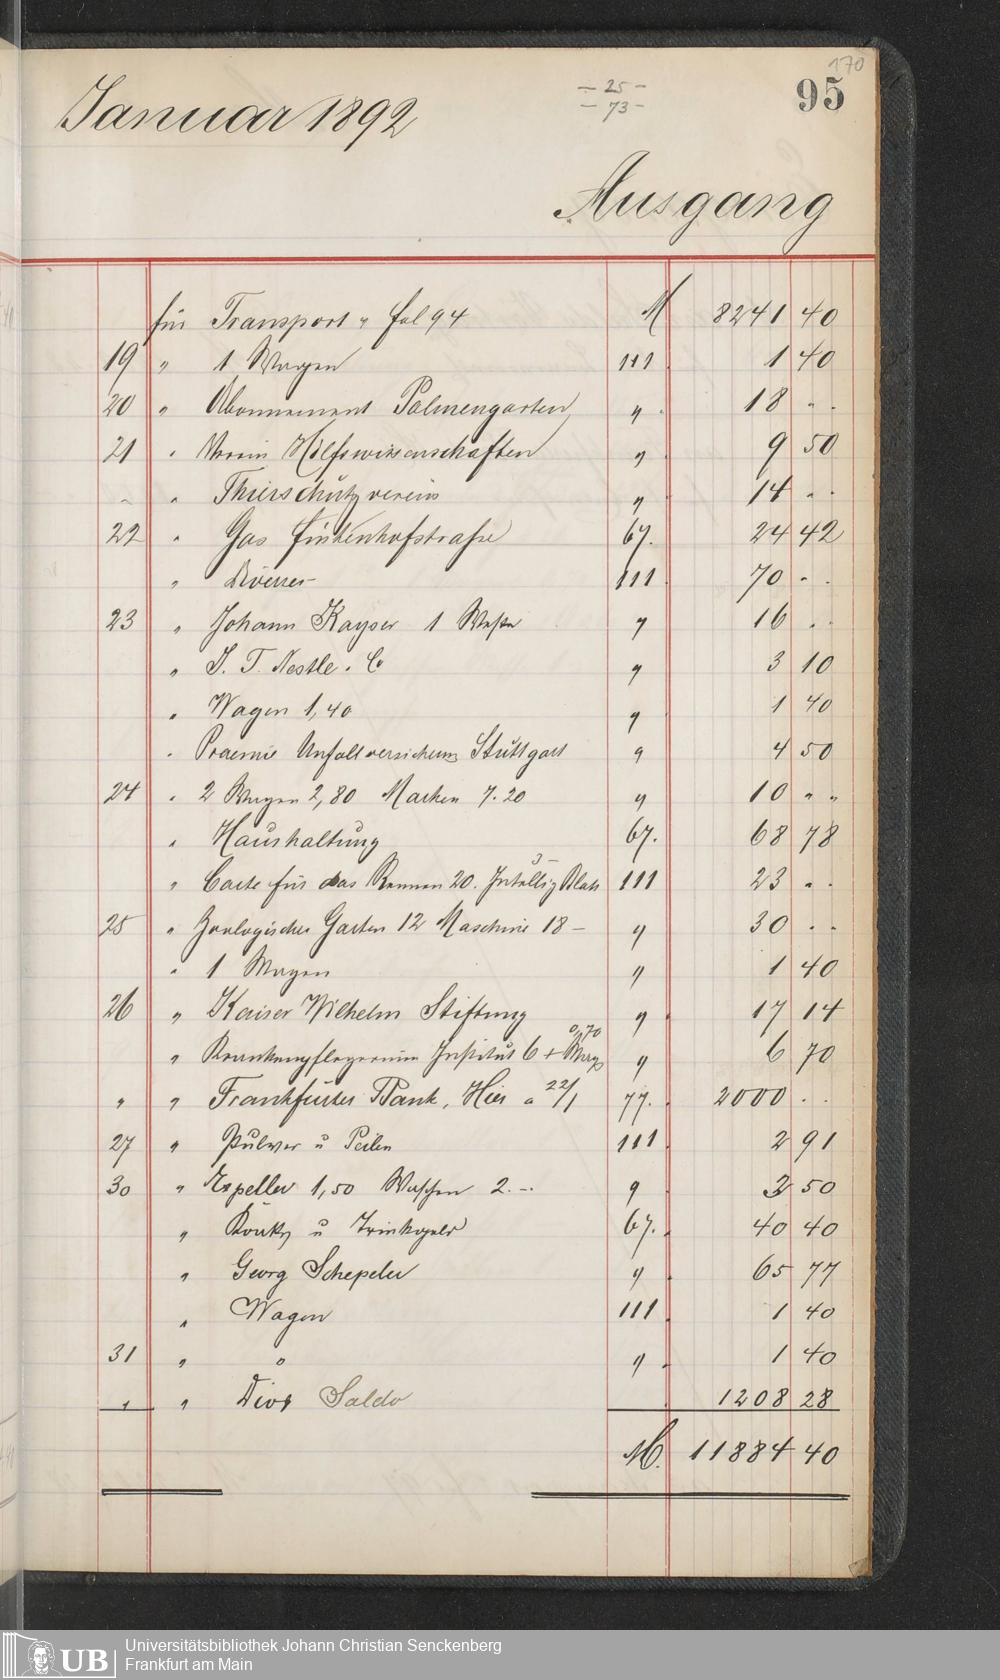 170
95
- 25 -
- 73 -
Januar 1892
Ausgang
für Transport " fol 94 M 8241 40
19 " 1 Wagen 111 1 40
20 " Abonnement Palmengarten " 18 " "
21 " Verein Hilfswissenschaften " 9 50
" " Thierschutzverein " 14 " "
22 " Gas Finkenhofstraße 67. 24 42
" 111 70 " "
23 " Johann Kayser 1 " 16 " "
" J. T. Nestle. Co " 3 10
" Wagen 1,40 " 1 40
" Praemie Unfallversicherung Stuttgart " 4 50
24 " 2 Wagen 2,80 Marken 7.20 " 10 " "
" Haushaltung 67. 68 78
" Carte für das Rennen 20. Intellig Blatt 3- 111 23 " "
25 " Zoologischer Garten 12 Maschine 18 - " 30 " "
" 1 Wagen " 1 40
26 " Kaiser Wilhelm Stiftung " 17 14
" Krankenpflegerinnen Institut 6 + 0,70 " 6 70
" " Frankfurter Bank, Hier a 22/1 77. 2000 " "
27 " Pulver u 111 2 91
30 " Expeller 1,50 Waschen 2.- " 3 50
" u Trinkgeld 67. 40 40
" Georg Schepeler " 65 77
" Wagen 111 1 40
31 " " " 1 40
" " Divs Saldo 1208 28
M. 11884 40
UB
Universitätsbibliothek Johann Christian Senckenberg
Frankfurt am Main